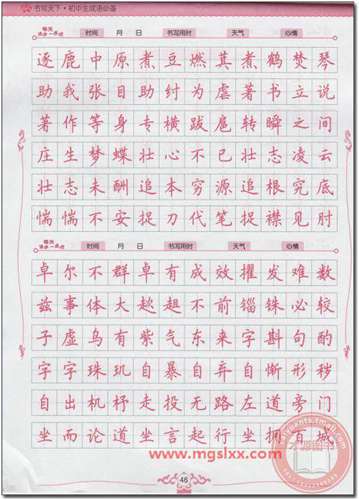 书写天下·初中生成语必备
每天进步一点点 时间 月 日 书写用时 天气 心情
逐鹿中原煮豆燃萁煮鹤焚琴
助我张目助纣为虐著书立说
著作等身专横跋扈转瞬之间
庄生梦蝶壮心不已壮志凌云
壮志未酬追本穷源追根究底
惴惴不安捉刀代笔捉襟见肘
每天进步一点点 时间 月 日 书写用时 天气 心情
卓尔不群卓有成效擢发难数
兹事体大趑趄不前锱铢必较
子虚乌有紫气东来字斟句酌
字字珠玑自暴自弃自惭形秽
自出机杼走投无路左道旁门
坐而论道坐言起行坐拥百城
www.mgslxx.com
46